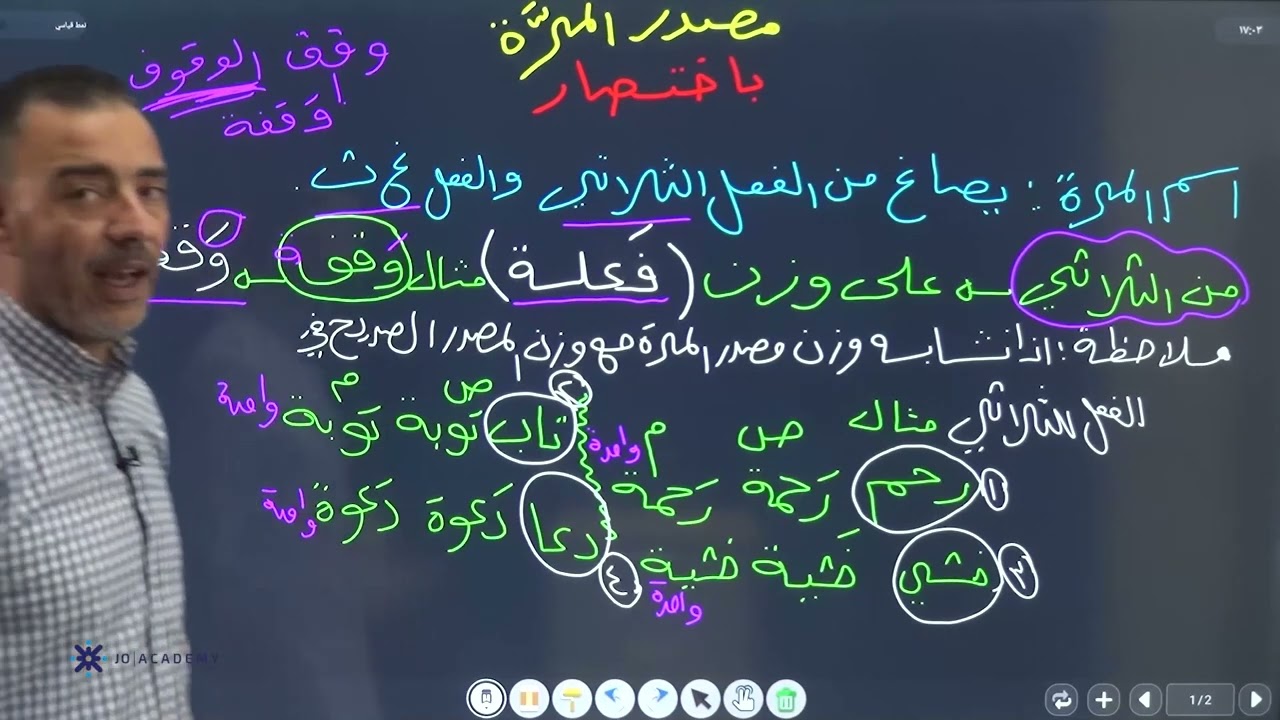 نمط قياسي
١٧:٠٣
مصدر المرّة
باختصار
وقف الوقوف
وَقفة
اسم المرة : يصاغ من الفعل الثلاثي والفعل غ ث .
من الثلاثي على وزن (فَعلة) مثال وَقف وَقفـ
ملاحظة : اذا تشابه وزن مصدر المرة مع وزن المصدر الصريح في
الفعل الثلاثي مثال ص م ص م
١ رحم رَحمة رَحمة واحدة ٢ تاب تَوبة تَوبة واحدة
٣ خشي خَشية خَشية واحدة ٤ دعا دَعوة دَعوة واحدة
JO|ACADEMY
1/2